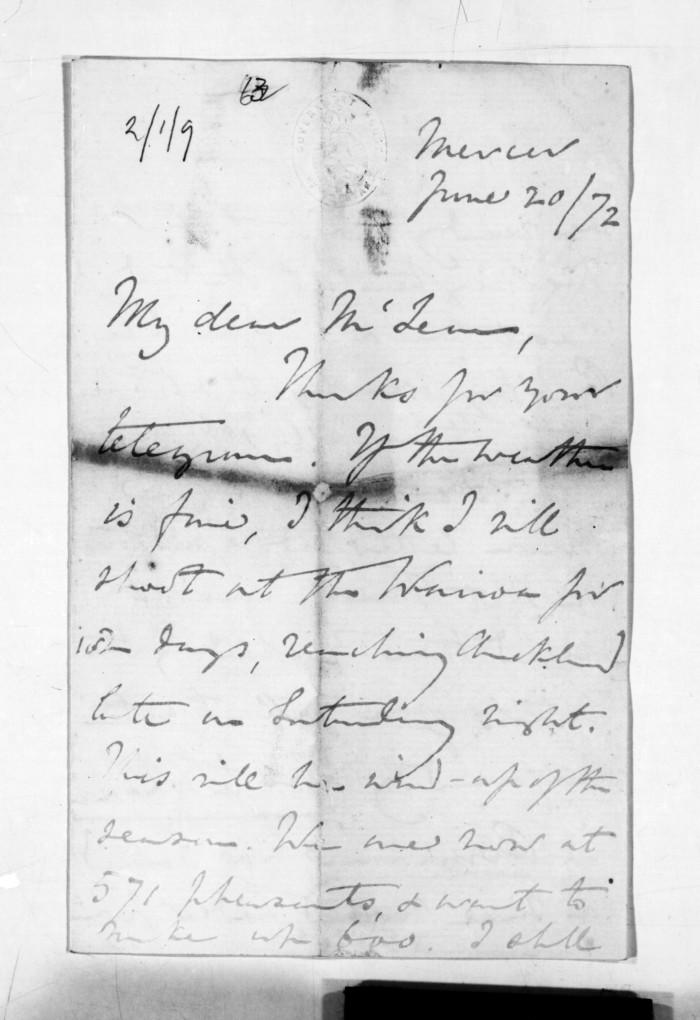 63
2/1/9
Mercer
June 20/72
My dear McLean,
Thanks for your
telegram. If the weather
is fine, I think I will
shoot at the Wairoa for
days, reaching Auckland
late on Saturday night.
This will be wind-up of the
season. We are now at
571 pheasants, & want to
make up 600. I shall